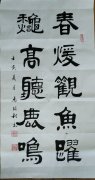 春煖觀魚躍
龝高聽鹿鳴